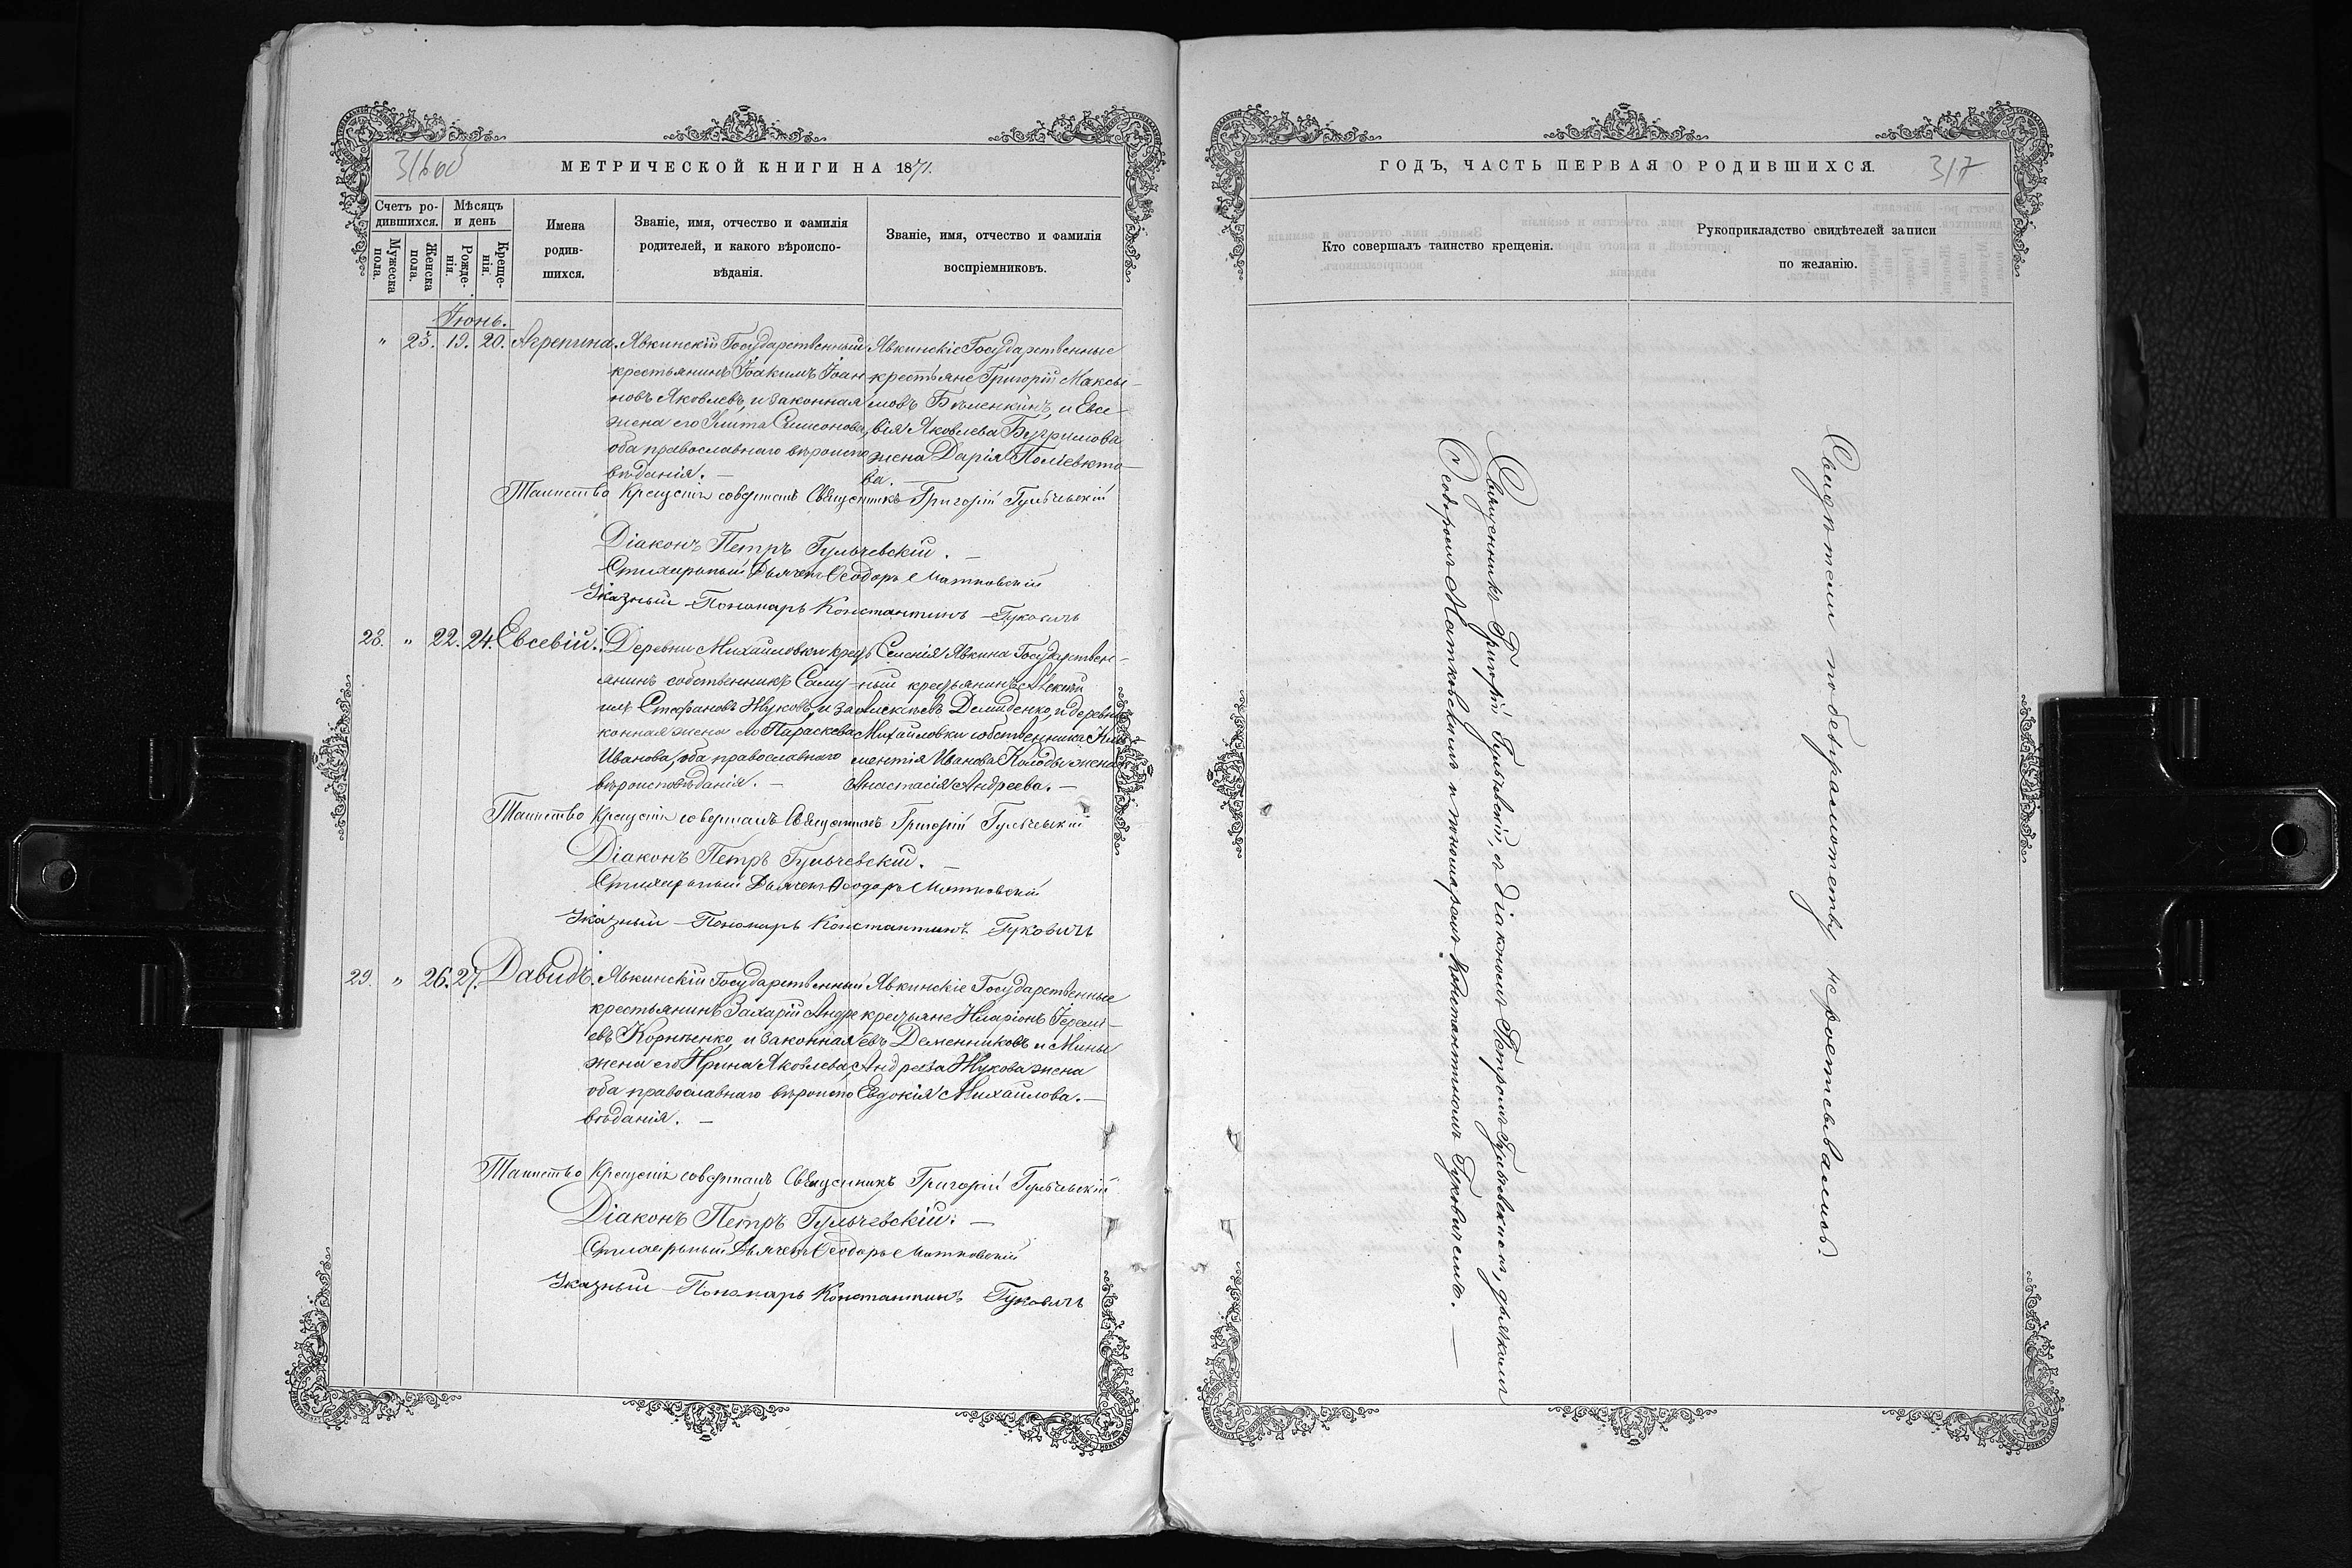 316 об
МЕТРИЧЕСКОЙ КНИГИ НА 1871.
Счетъ ро-
дившихся.
Мѣсяцъ
и день
Мужеска
пола.
Женска
пола.
Рожде-
нія.
Креще-
нія.
Имена
родив-
шихся.
Званіе, имя, отчество и фамилія
родителей, и какого вѣроиспо-
вѣданія.
Званіе, имя, отчество и фамилія
воспріемниковъ.
Іюнь.
" 25. 19. 20. Агрепина.
Явкинскій Государственный
крестьянинъ Іоакимъ Іоан
новъ Яковлевъ, и законная
жена его Улита Симеонова,
оба православнаго вѣроиспо
вѣданія. —
Явкинскіе Государственные
крестьяне Григорій Макси-
мовъ Бѣленкинъ, и Евсе-
вія Яковлева Бугримова
жена Дарія Поліевкто-
ва. —
Таинство Крещенія совершалъ Священникъ Григорій Гульчевскій
Діаконъ Петръ Гульчевскій. —
Стихарный Дьячекъ Ѳеодоръ Матковскій
Указный Пономарь Константинъ Гуковичъ
28. " 22. 24. Евсевій.
Деревни Михайловки крест
янинъ собственникъ Саму
илъ Стефановъ Жуковъ, и за
конная жена его Параскева
Иванова, оба православнаго
вѣроисповѣданія. —
Селенія Явкина Государствен-
ный крестьянинъ Алексѣй
Алексѣевъ Демиденко, и деревни
Михайловки собственника Кли
ментія Иванова Колоды жена
Анастасія Андреева. —
Таинство Крещенія совершалъ Священникъ Григорій Гульчевскій
Діаконъ Петръ Гульчевскій. —
Стихарный Дьячекъ Ѳеодоръ Матковскій
Указный Пономарь Константинъ Гуковичъ
29. " 26. 27. Давидъ.
Явкинскій Государственный
крестьянинъ Захарій Андре
евъ Корнѣенко, и законная
жена его Ирина Яковлева,
оба православнаго вѣроиспо
вѣданія. —
Явкинскіе Государственные
крестьяне Иларіонъ Іеремі-
евъ Деменниковъ и Мины
Андреева Жукова жена
Евдокія Михайлова. —
Таинство Крещенія совершалъ Священникъ Григорій Гульчевскій
Діаконъ Петръ Гульчевскій. —
Стихарный Дьячекъ Ѳеодоръ Матковскій
Указный Пономарь Константинъ Гуковичъ
ГОДЪ, ЧАСТЬ ПЕРВАЯ О РОДИВШИХСЯ.
317
Кто совершалъ таинство крещенія.
Рукоприкладство свидѣтелей записи
по желанію.
Священникъ Григорій Гульчевскій, съ Діакономъ Петромъ Гульчевскимъ, дьячкомъ
Ѳеодоромъ Матковскимъ и пономаремъ Константиномъ Гуковичемъ. —
Свидѣтели по безграмотству не росписывались.